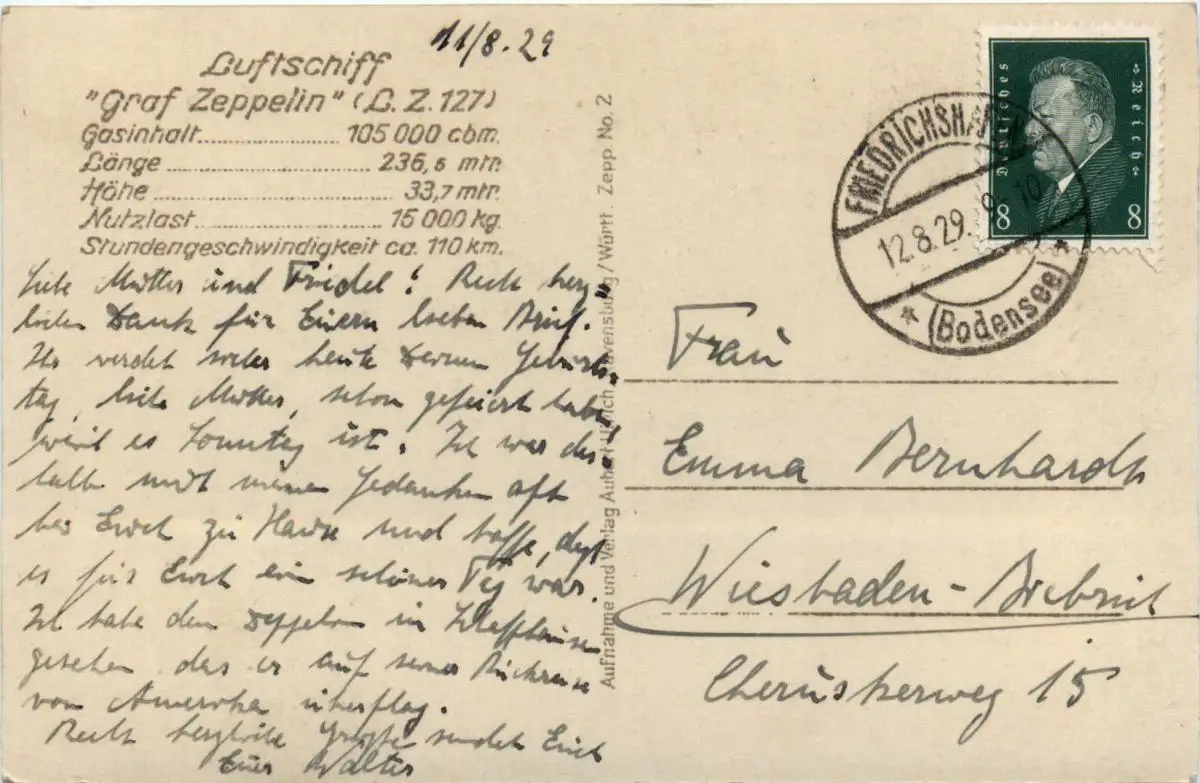 11/8.29
Luftschiff
"Graf Zeppelin" (L.Z.127)
Gasinhalt............105 000 cbm.
Länge............236,6 mtr.
Höhe............33,7 mtr.
Nutzlast............15 000 kg.
Stundengeschwindigkeit ca. 110 km.
Liebe Mutter und Friedel! Recht herz
lichen Dank für Euern lieben Brief.
Ihr werdet wohl heute Deinen Geburts-
tag, liebe Mutter, schon gefeiert haben
weil es Sonntag ist. Ich war des-
halb mit meinen Gedanken oft
bei Euch zu Hause und hoffe, daß
es für Euch ein schöner Tag war.
Ich habe den Zeppelin in Schaffhausen
gesehen, das er auf seiner Rückreise
von Amerika überflog.
Recht herzliche Grüße sendet Euch
Euer Walter
Aufnahme und Verlag Ravensburg/Württ. Zepp No. 2
Deutsches Reich
8 8
FRIEDRICHSHAFEN
12.8.29. 9-10
(Bodensee)
Frau
Emma Bernhardt
Wiesbaden-Biebrich
Cheruskerweg 15